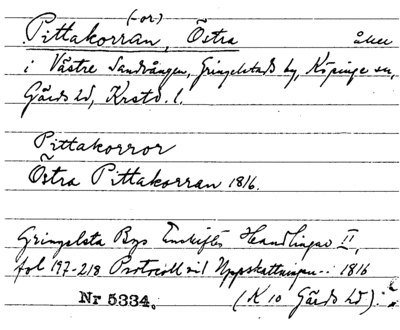 (-or)
Pittakorran, Östra åker
i Västre Sandvången, Gringelstads by, Köpinge sn,
Gärds hd, Krstd. l.
Pittakorror
Östra Pittakorran 1816.
Gringelsta Bys Enskiftes Handlingar II,
fol 197-218 Protocoll vid Uppskattningen... 1816
Nr 5334. (K 10 Gärds hd).